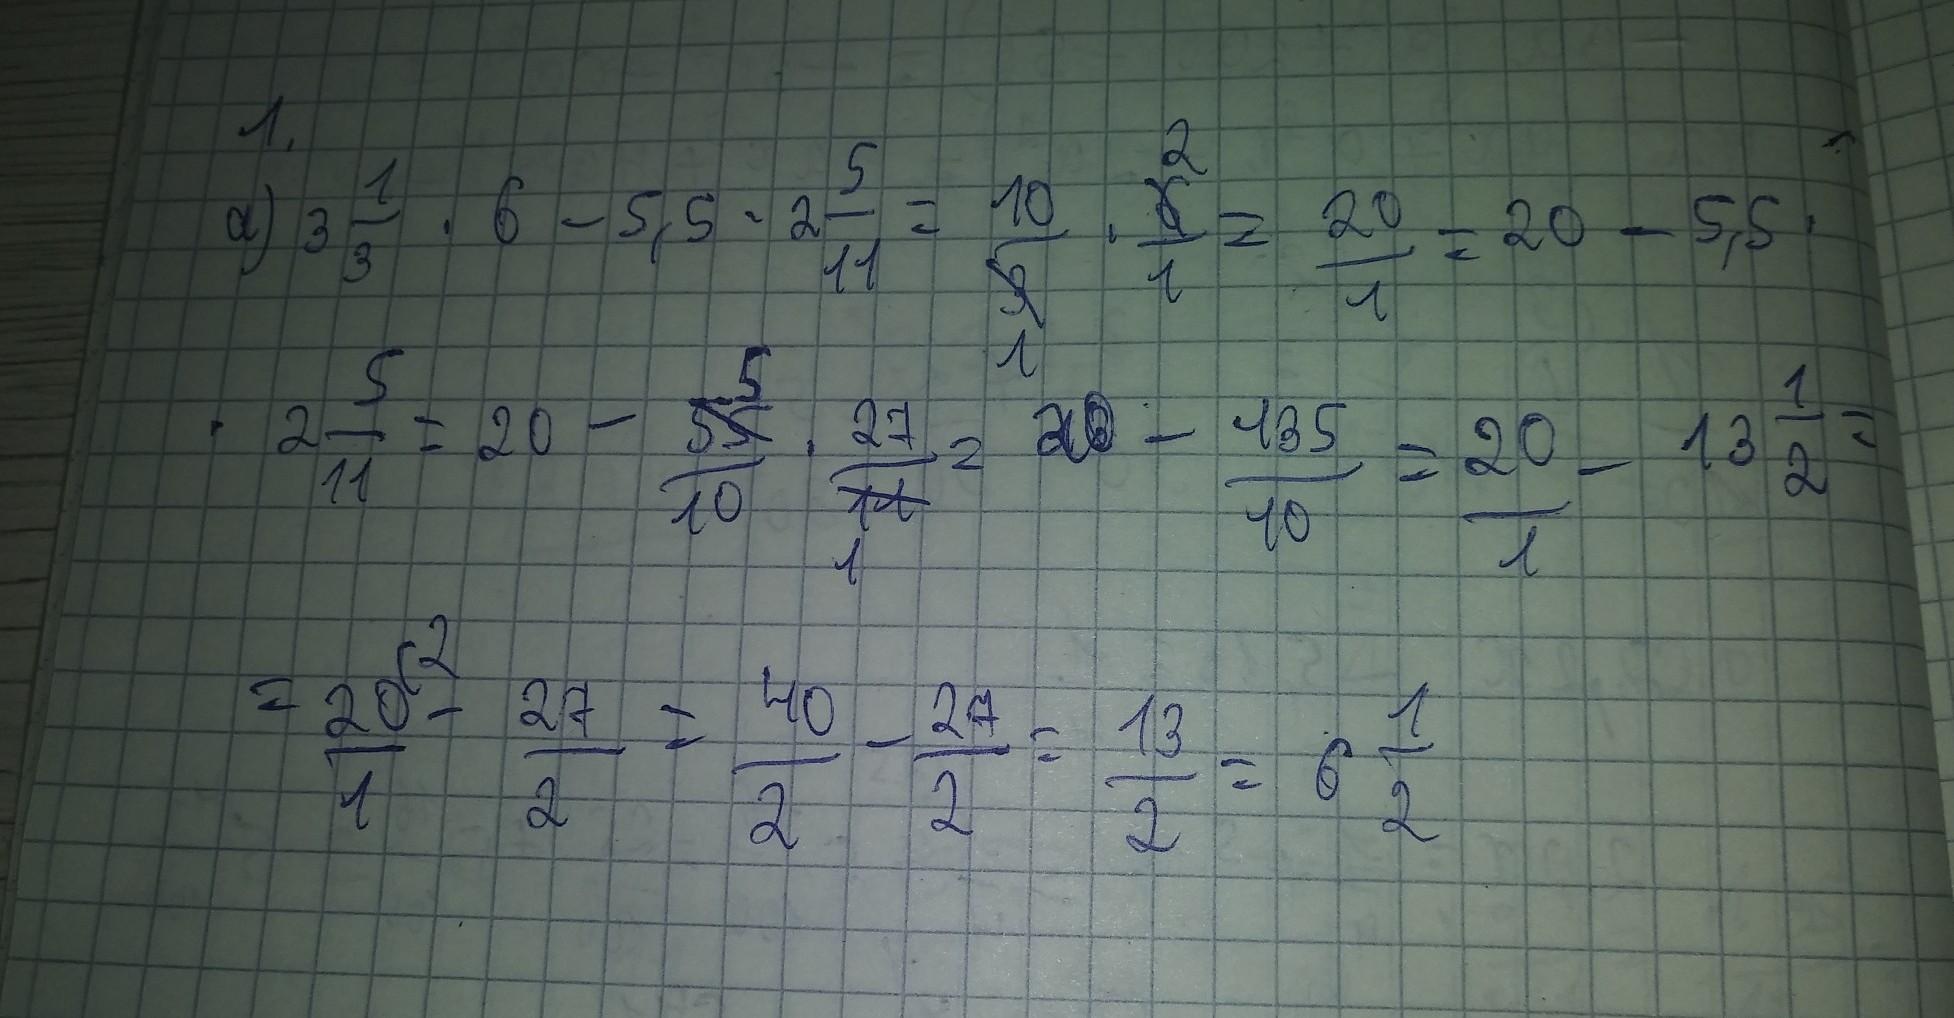 1.
a) 3 1/3 · 6 - 5,5 · 2 5/11 = 10/3 1 · 6/1 2 = 20/1 = 20 - 5,5 ·
· 2 5/11 = 20 - 55/10 5 · 27/11 1 = 20 - 135/10 = 20/1 - 13 1/2 =
= 20/1 (2 - 27/2 = 40/2 - 27/2 = 13/2 = 6 1/2